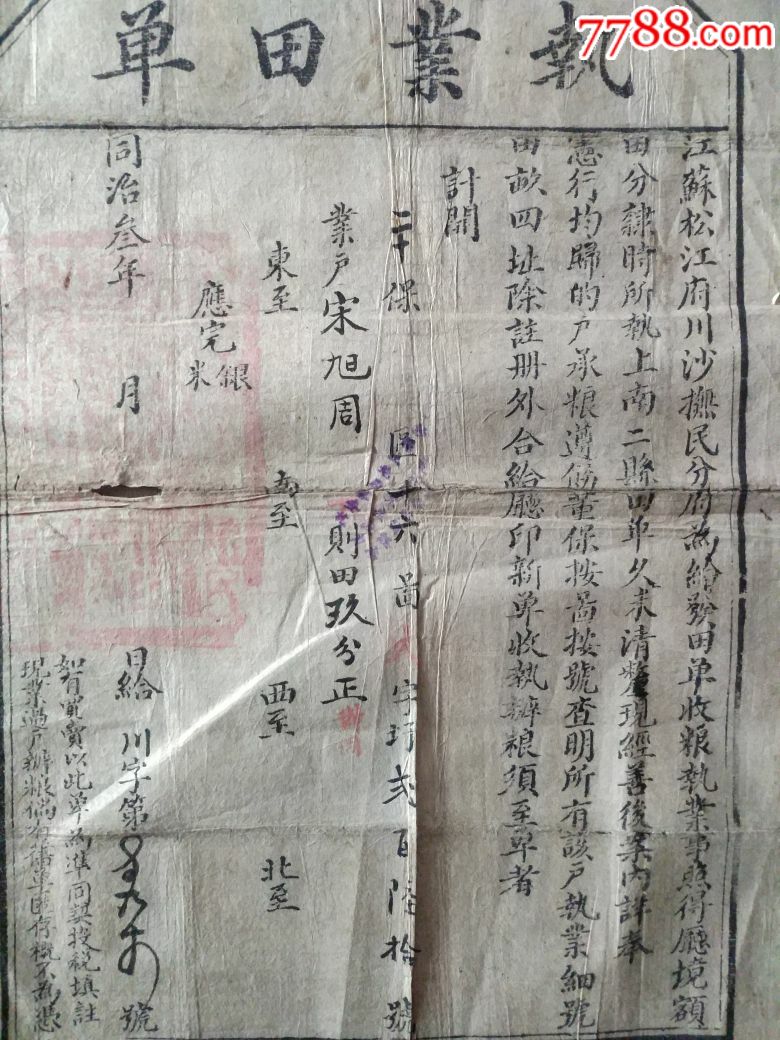 7788.com
執業田單
江蘇松江府川沙撫民分府為給發田单收粮執業事照得廳境額
田分隸時所執上南二縣田单久未清釐現經善後案內詳奉
憲行均歸的户承粮遵飭董保按啚按號查明所有該户執業細號
田畝四址除註册外合給廳印新单收執辦粮須至单者
計開
二十保 區十六啚 字圩弍百陸拾號
業户宋旭周 則田玖分正
東至 南至 西至 北至
應完銀米
同治叁年 月 日給 川字第 號
如有買賣以此单為準同契投稅填註
現業過户辦粮倘有舊单匿存概不為憑